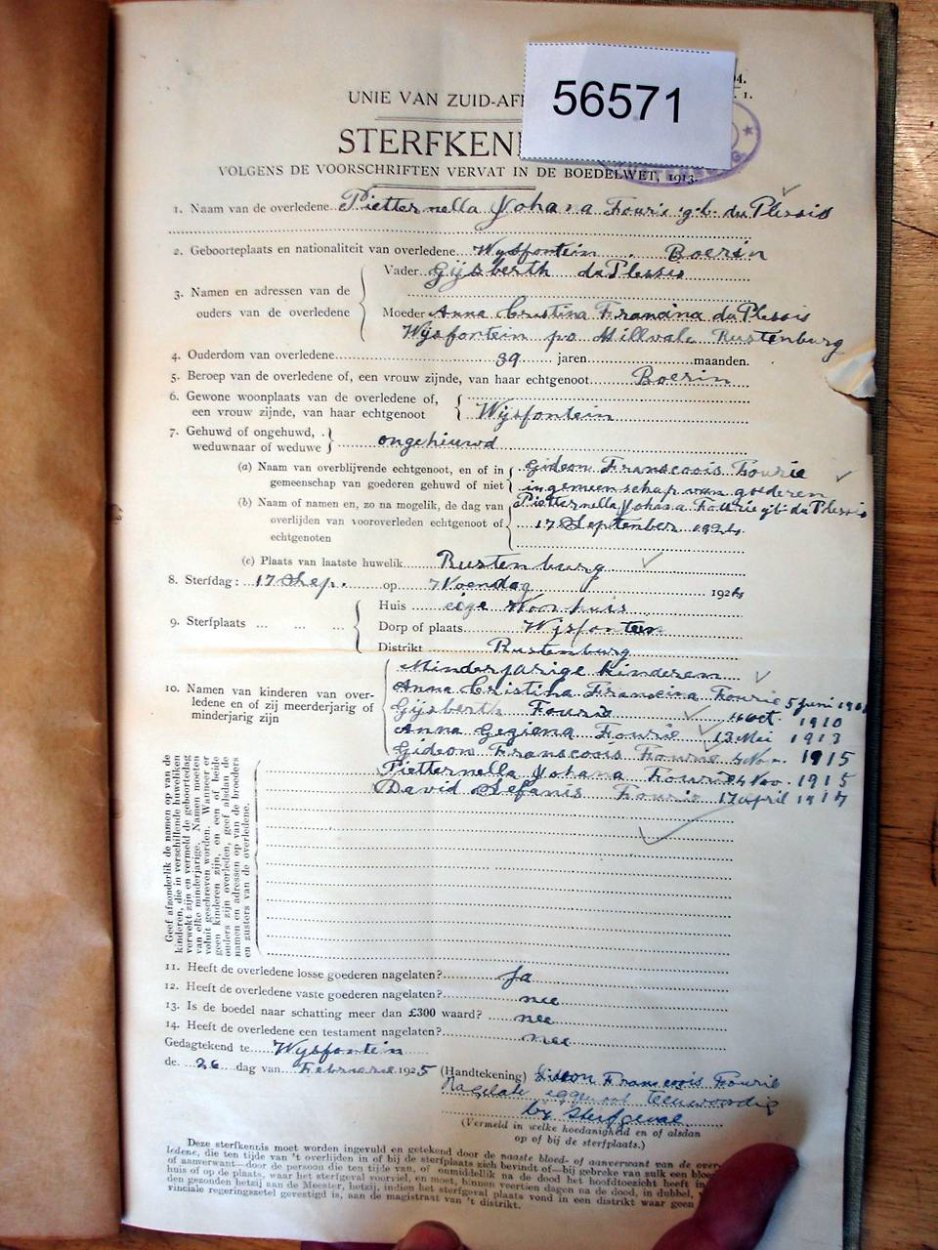 56571
94.
1.
UNIE VAN ZUID-AF
STERFKEN
VOLGENS DE VOORSCHRIFTEN VERVAT IN DE BOEDELWET, 1913.
1. Naam van de overledene Pietternella Johana Fourie gb. du Plessis
2. Geboorteplaats en nationaliteit van overledene Wysfontein. Boerin
Vader Gijsberth du Plessis
3. Namen en adressen van de
ouders van de overledene
Moeder Anna Cristina Francina du Plessis
Wysfontein po Millvale Rustenburg
4. Ouderdom van overledene 39 jaren maanden.
5. Beroep van de overledene of, een vrouw zijnde, van haar echtgenoot Boerin
6. Gewone woonplaats van de overledene of,
een vrouw zijnde, van haar echtgenoot Wysfontein
7. Gehuwd of ongehuwd,
weduwnaar of weduwe ongehiuwd
(a) Naam van overblijvende echtgenoot, en of in
gemeenschap van goederen gehuwd of niet
Gideon Franscoois Fourie
in gemeenschap van goederen
(b) Naam of namen en, zo na mogelik, de dag van
overlijden van vooroverleden echtgenoot of
echtgenoten
Pietternella Johana Fourie gb. du Plessis
17 September 1924
(c) Plaats van laatste huwelik Rustenburg
8. Sterfdag: 17 Sep. op Woendag 1924
9. Sterfplaats ... ... ...
Huis eige Woonhuis
Dorp of plaats Wysfontein
Distrikt Rustenburg
10. Namen van kinderen van over-
ledene en of zij meerderjarig of
minderjarig zijn
Minderjarige kinderen
Anna Cristina Francina Fourie 5 Juni
Gijsberth Fourie Oct. 1910
Anna Gegiena Fourie 13 Mei 1913
Gideon Franscoois Fourie 4 Nov. 1915
Pietternella Johana Fourie 4 Nov. 1915
David Stefanis Fourie 17 April 1917
Geef afzonderlik de namen op van de
kinderen, die in verschillende huweliken
verwekt zijn en vermeld de geboortedag
van elke minderjarige. Namen moeten
voluit geschreven worden. Wanneer er
geen kinderen zijn, en een of beide
ouders zijn overleden, geef alsdan de
namen en adressen op van de broeders
en zusters van de overledene.
11. Heeft de overledene losse goederen nagelaten? Ja
12. Heeft de overledene vaste goederen nagelaten? nee
13. Is de boedel naar schatting meer dan £300 waard? nee
14. Heeft de overledene een testament nagelaten? nee
Gedagtekend te Wysfontein
de 26 dag van Februarie 1925 (Handtekening) Gideon Franscoois Fourie
Nagelate
by Sterfgeval
(Vermeld in welke hoedanigheid en of alsdan
op of bij de sterfplaats.)
Deze sterfkennis moet worden ingevuld en getekend door de naaste bloed- of aanverwant van de over-
ledene, die ten tijde van 't overlijden in of bij de sterfplaats zich bevindt of—bij gebreke van sulk een bloe
of aanverwant—door de persoon die ten tijde van, of onmiddelik na de dood het hoofdtoezicht heeft in
huis of op de plaats, waar het sterfgeval voorviel, en moet, binnen veertien dagen na de dood, in dubbel,
den gezonden hetzij aan de Meester, hetzij, indien het sterfgeval plaats vond in een distrikt waar geen
vinciale regeringszetel gevestigd is, aan de magistraat van 't distrikt.